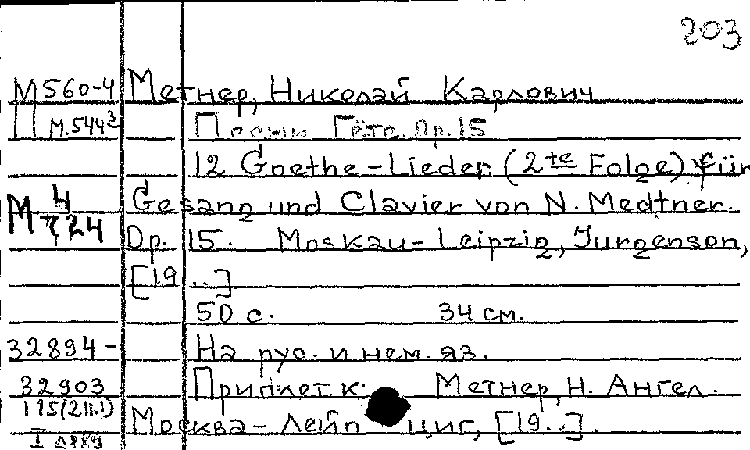 203
М560-4 Метнер, Николай Карлович
П М.544² Песни Гёте. Op. 15
12 Goethe-Lieder (2te Folge) für
М 4/724 Gesang und Clavier von N. Medtner.
Op. 15. Moskau-Leipzig, Jurgenson,
[19..]
50 с. 34 см.
32894- На рус. и нем. яз.
32903 Приплет к: Метнер, Н. Ангел.
Москва-Лейпциг, [19..].